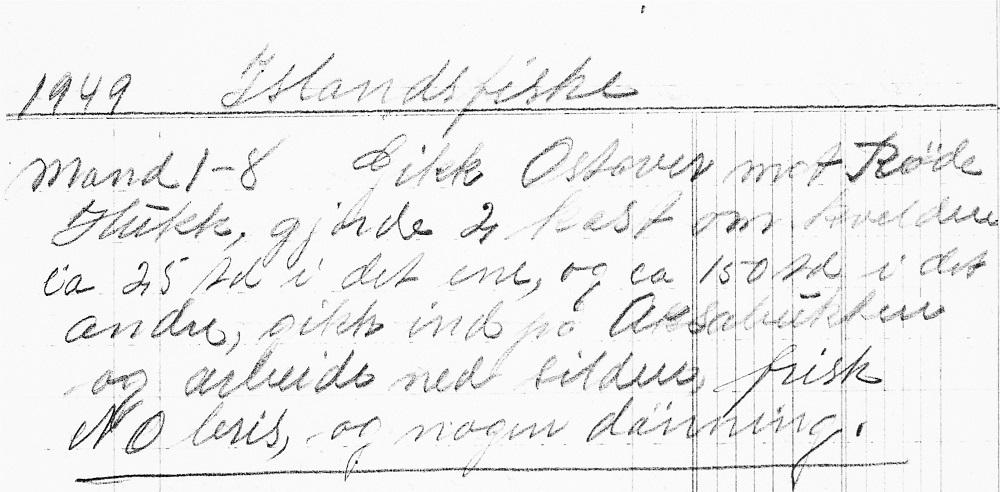 1949 Islandsfiske
Mand 1-8 Gikk Ostover mot Röde
Hukk, gjorde 2 kast om kvelden
ca 25 td i det ene, og ca 150 td i det
andre, gikk ind på Aksabukten
og arbeide ned silden, frisk
NO bris, og nogen dønning.